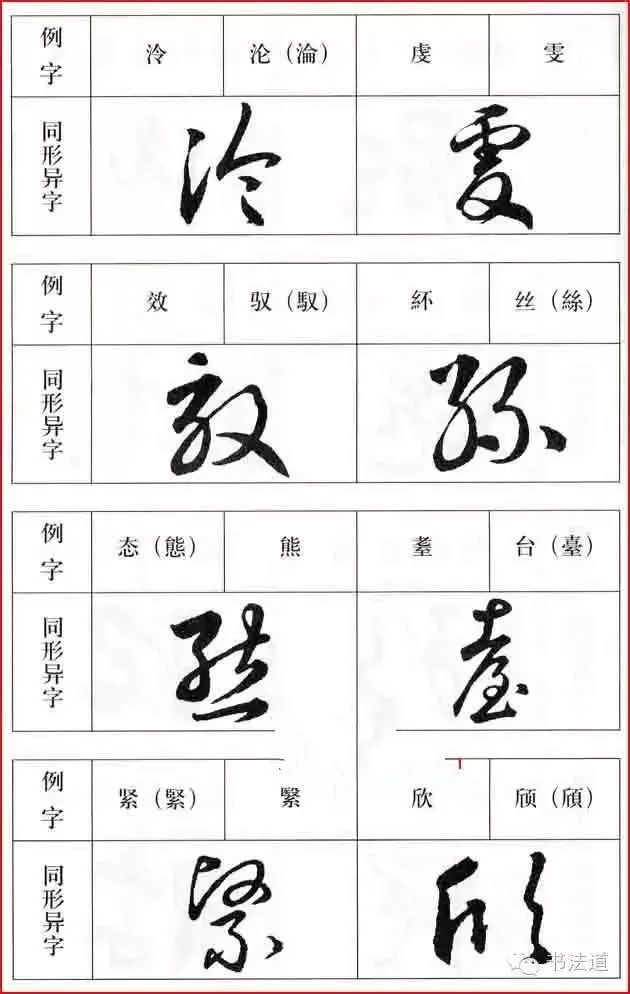 例字 泠 沦（淪） 虔 雯
同形异字
例字 效 驭（馭） 紑 丝（絲）
同形异字
例字 态（態） 熊 耋 台（臺）
同形异字
例字 紧（緊） 繄 欣 颀（頎）
同形异字
书法道